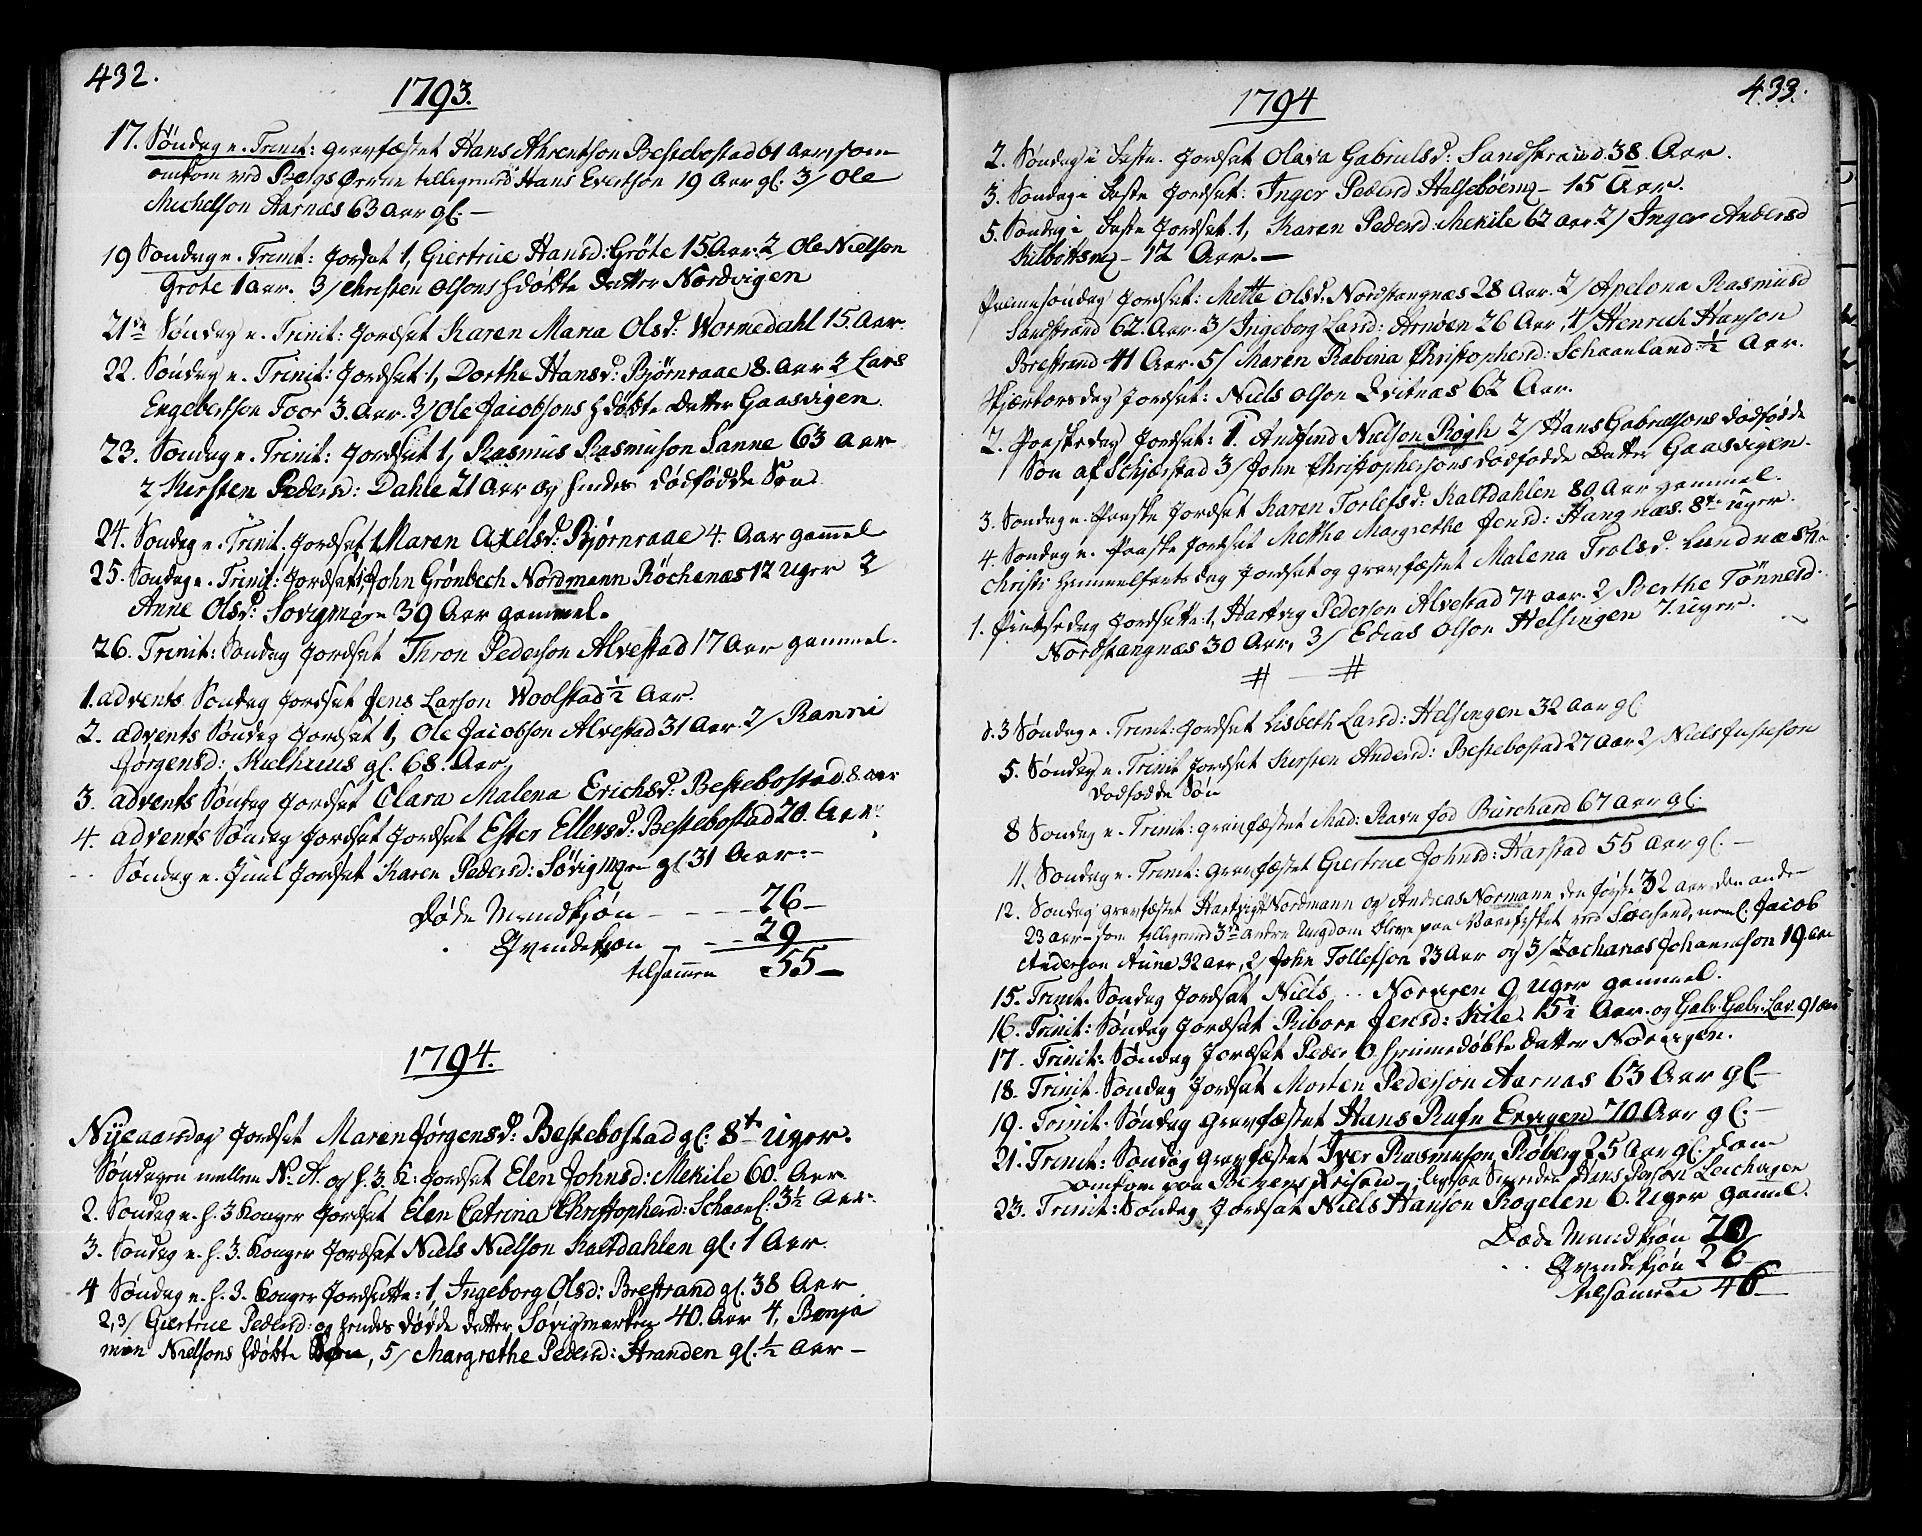 432.
1793.
17. Søndag e. Trinit: gravfæstet Hans Ahrentson Bestebostad 61 Aar som
omkom ved Øerne tilligemed Hans Evertson 19 Aar gl: 3/ Ole
Michelson Aarnæs 63 Aar gl. —
19 Søndag e. Trinit: Jordsat 1, Giertrue Hansd: Grøte 15 Aar. 2 Ole Nielson
Grøte 1 aar. 3/ Christen Olsons hdøbte Datter Nordvigen
21de Søndag e. Trinit: Jordsat Karen Maria Olsd: Wormedahl 15. Aar.
22. Søndag e. Trinit: Jordsat 1, Dorthe Hansd: Bjørnraae 8. Aar 2 Lars
Engebertson Toor 3. Aar. 3/ Ole Jacobsons hdøbte Datter Gaasvigen
23. Søndag e. Trinit: Jordsat 1, Rasmus Rasmuson Sanne 63 Aar
2 Kirsten Pedersd: Dahle 21 Aar og hendes dødfødde Søn
24. Søndag e. Trinit. Jordsat Maren Axelsd: Bjørnraae 4. Aar gammel
25. Søndag e. Trinit: Jordsat 1, John Grønbech Nordmann Røchenæs 12 Uger 2
Anne Olsd: Sovigm: 39 Aar gammel.
26. Trinit: Søndag Jordsat Thron Pederson Alvestad 17 Aar gammel.
1. advents Søndag Jordsat Jens Larson Woolstad ½ Aar.
2. advents Søndag Jordsat 1, Ole Jacobson Alvestad 31 Aar. 2/ Ranni
Jørgensd: Kulhuus gl. 68. Aar,
3. advents Søndag Jordsat Clara Malena Erichsd: Bestebostad 8. aar
4. advents Søndag Jordsat Jordsat Ester Ellevsd: Bestebostad 20. Aar.
Søndag e. Juul Jordsat Karen Pedersd: Søvigm: gl 31 Aar. —
Døde Mandkjøn — — — 26 —
Qvindekjøn — — 29
tilsammen 55 —
1794.
Nyeaarsdag Jordsat Maren Jørgensd: Bestebostad gl: 8te Uger.
Søndagen mellem N: A. og h. 3. K: Jordsat Elen Johnsd: Mekile 60. Aar
2. Søndag e. h. 3 Konger Jordsat Elen Catrina Christophersd: Schaanl: 3½ Aar.
3. Søndag e. h. 3. Konger Jordsat Niels Nielson Kaltdahlen gl: 1 Aar.
4 Søndag e. h. 3. Konger Jordsatte: 1, Ingeborg Olsd: Brestrand gl. 38 Aar
2, 3/ Giertrue Pedersd: og hendes døde datter Søvigmarken 40. Aar 4, Benja
min Nielsons hdøbte, 5/ Margrethe Pedersd: Stranden gl. ½ Aar —
433.
1794
2. Søndag i Faste. Jordsat Olava Gabrielsd: Sandstrand 38. Aar.
3. Søndag i Faste Jordsat: Inger Pedersd Halsebøem — 15 Aar.
5. Søndag i Faste Jordsat: 1, Karen Pedersd: Mekile 62 Aar 2/ Inger Andersd
Kilbottsm — 12 Aar. —
Palmesøndag Jordsat: Mette Olsd: Nordstangnæs 28 Aar. 2/ Apelona Rasmusd
Sandstrand 62. Aar. 3/ Ingeborg Larsd: Arnøen 26 Aar, 4/ Henrich Hanson
Brestrand 41 Aar. 5/ Maren Rabina Christophersd: Schaanland ½ Aar.
Skjærtorsdag Jordsat: Niels Olson Qvitnæs 62 Aar.
2. Paaskedag Jordsat: 1. Andfind Nielson Rogh 2/ Hans Gabrielsons dødfødde
Søn af Schjærstad 3/ John Christophersons dødfødde Datter Gaasvigen.
3. Søndag e. Paaske Jordsat Karen Torlefsd: Kaltdahlen 80 Aar gammel.
4. Søndag e. Paaske Jordsat Metha Margrethe Jensd: Hangnæs. 8te uger.
Christi Himmelfarts dag Jordsat og gravfæstet Malena Trolsd: Lundnæs
1. Pintsedag Jordsatte: 1, Hartvig Pederson Alvestad 74 aar. 2 Berthe Tønnesd:
Nordstangnæs 30 Aar, 3/ Edias Olson Helsingen 7 uger.
# — #
d. 3 Søndag e. Trinit: Jordsat Lisbeth Larsd: Helsingen 32 Aar gl.
5. Søndag e. Trinit Jordsat Kirsten Andersd: Bestebostad 27 Aar 2/ Niels Justeson
dødfødde Søn
8 Søndag e. Trinit: gravfæstet Mad: Ravn fød Burchard 67 Aar gl.
11. Søndag e. Trinit: gravfæstet Giertrue Johnsd: Harstad 55 Aar gl. —
12. Søndag gravfæstet Hartvigt Nordmann og Andreas Normann den første 32 aar den anden
23 aar — som tilligemed 3de andre Ungdom bleve paa Vaarfisket ved Senjehand, neml. Jacob
Anderson Aune 32 aar, 2/ John Tollefson 23 Aar og 3/ Zacharias Johannson 19 aar
15. Trinit. Søndag Jordsat Niels .. Norvigen 9 Uger gammel.
16. Trinit: Søndag Jordsat Ribore Jensd: Kile 15½ Aar. og Gabr: Gabr: Lav. 91 aar
17. Trinit: Søndag Jordsat Peder O. hjemmedøbte Datter Norvigen.
18. Trinit. Søndag Jordsat Morten Pederson Aarnæs 63 Aar gl —
19. Trinit. Søndag gravfæstet Hans Rafn Ervigen 70 Aar gl. —
21. Trinit: Søndag gravfæstet Iver Rasmuson Røberg 25 Aar gl. som
omkom paa Reisen, ligesaa Svenden Hans Person Leichagen
23. Trinit: Søndag Jordsat Niels Hanson Rogelen 6. Uger gamml.
Døde Mandkjøn 20
.. Qvindekjøn 26
tilsamen 46 —